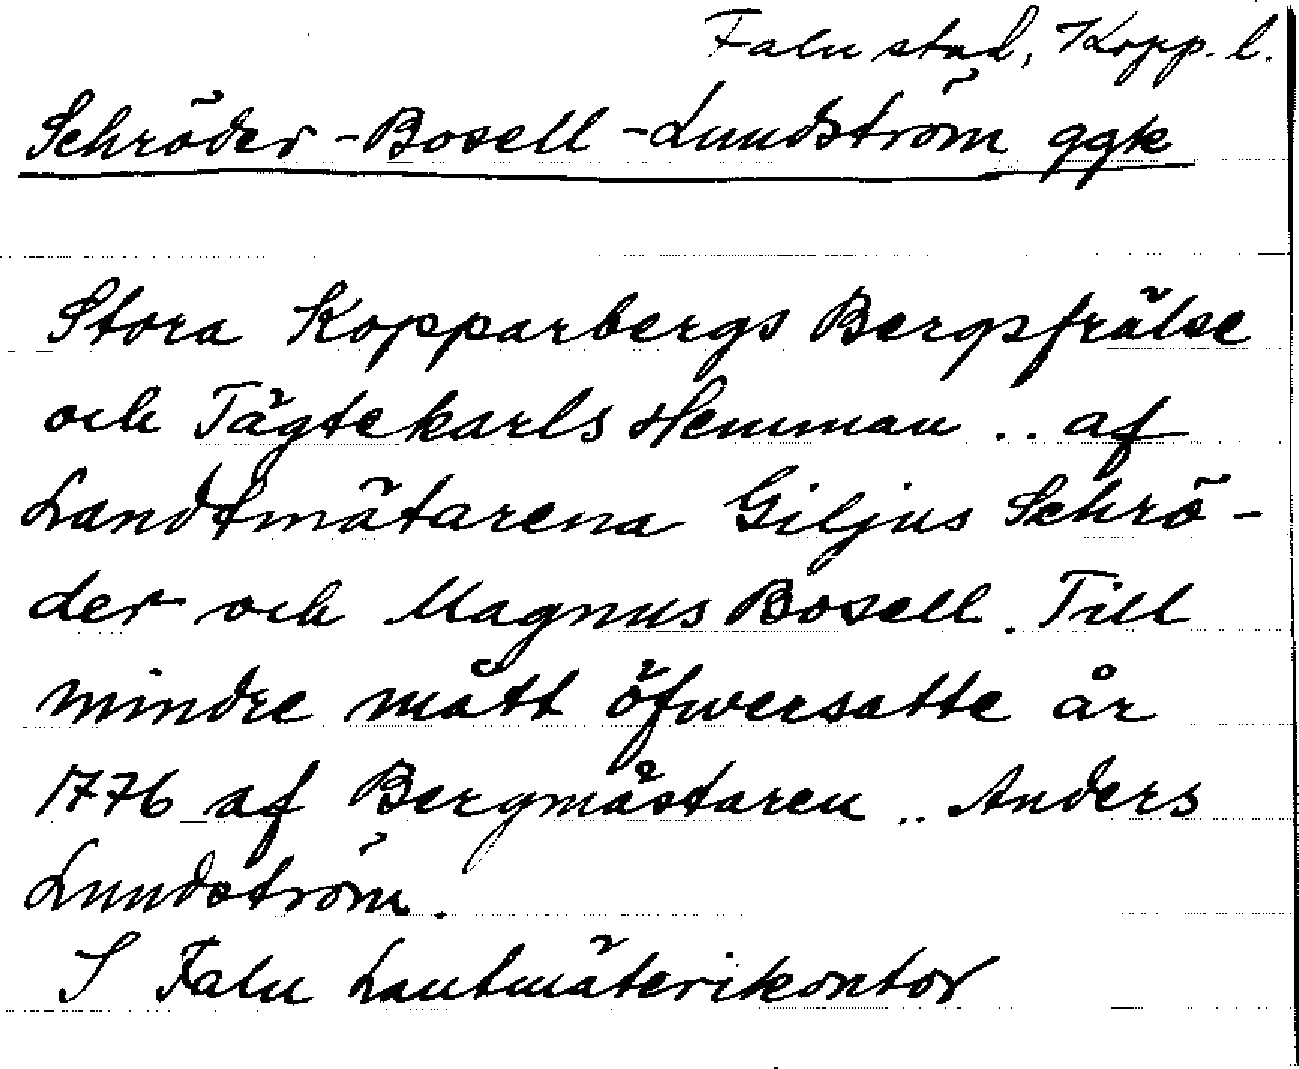 Falu stad, Kopp. l.
Schröder - Bosell - Lundström ggk
Stora Kopparbergs Bergsfrälse
och Tägtekarls Hemman .. af
Landtmätarena Giljus Schrö-
der och Magnus Bosell. Till
mindre mått öfwersatte år
1776 af Bergmästaren .. Anders
Lundström.
I Falu Lantmäterikontor